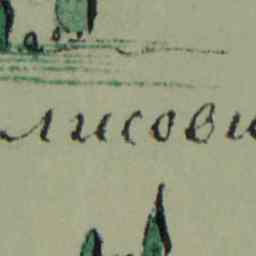 лисови